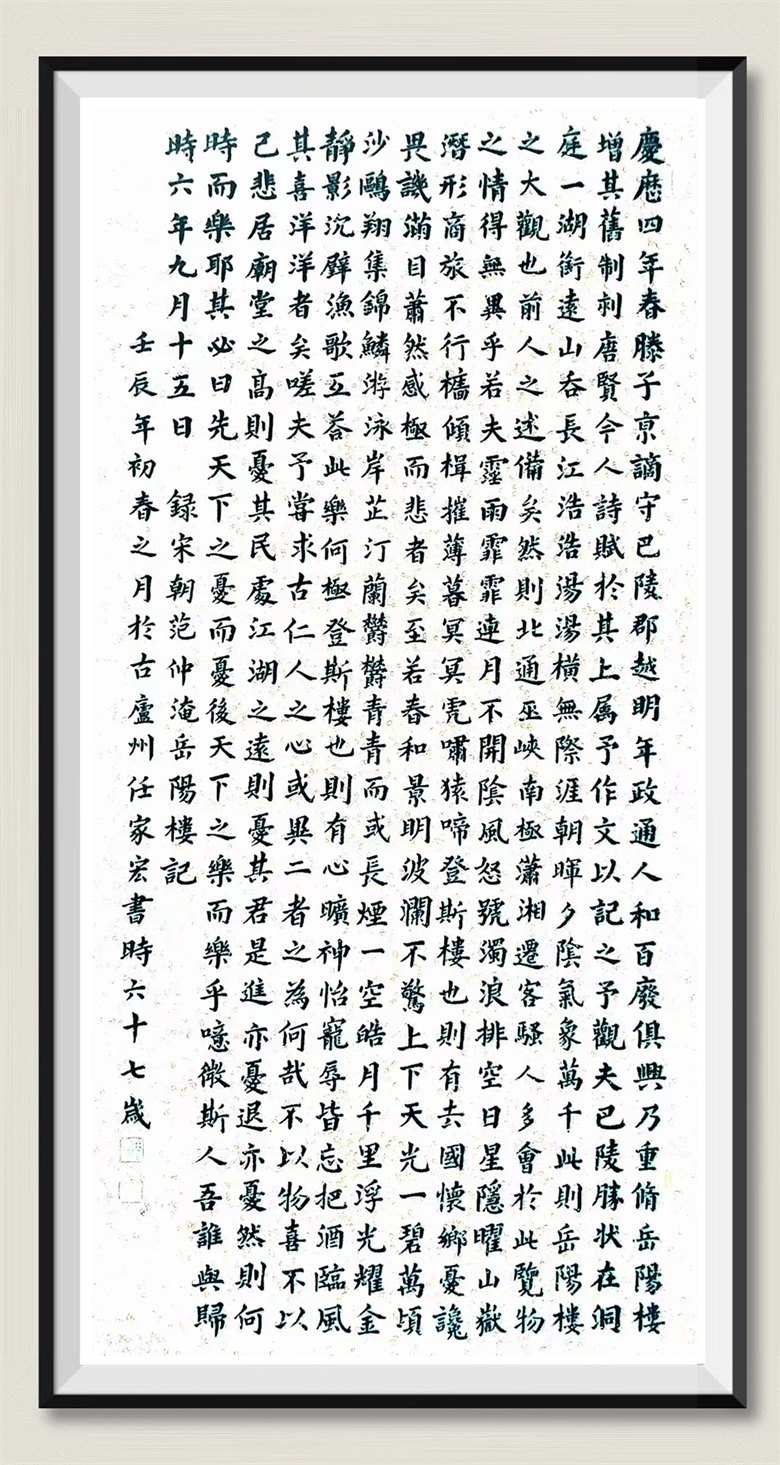 慶曆四年春滕子京謫守巴陵郡越明年政通人和百廢俱興乃重脩岳陽樓
增其舊制刻唐賢今人詩賦於其上属予作文以記之予觀夫巴陵勝狀在洞
庭一湖銜遠山吞長江浩浩湯湯橫無際涯朝暉夕陰氣象萬千此則岳陽樓
之大觀也前人之述備矣然則北通巫峽南極瀟湘遷客騷人多會於此覽物
之情得無異乎若夫霪雨霏霏連月不開陰風怒號濁浪排空日星隱曜山嶽
潛形商旅不行檣傾楫摧薄暮冥冥虎嘯猿啼登斯樓也則有去國懷鄉憂讒
畏譏滿目蕭然感極而悲者矣至若春和景明波瀾不驚上下天光一碧萬頃
沙鷗翔集錦鱗游泳岸芷汀蘭欝欝青青而或長煙一空皓月千里浮光耀金
靜影沉璧漁歌互荅此樂何極登斯樓也則有心曠神怡寵辱皆忘把酒臨風
其喜洋洋者矣嗟夫予嘗求古仁人之心或異二者之為何哉不以物喜不以
己悲居廟堂之高則憂其民處江湖之遠則憂其君是進亦憂退亦憂然則何
時而樂耶其必曰先天下之憂而憂後天下之樂而樂乎噫微斯人吾誰與歸
時六年九月十五日 録宋朝范仲淹岳陽樓記
壬辰年初春之月於古廬州任家宏書時六十七歲